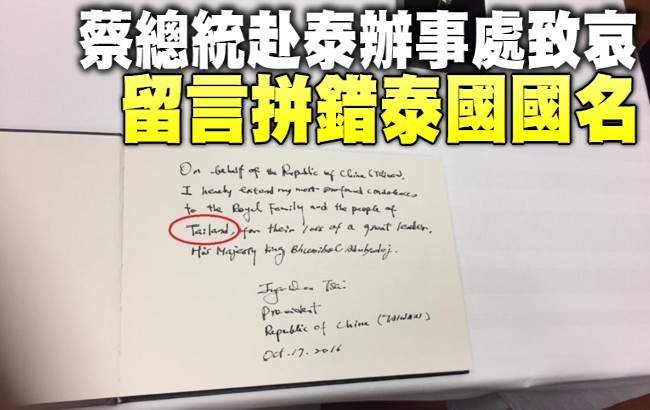 蔡總統赴泰辦事處致哀
留言拼錯泰國國名
On behalf of the Republic of China (Taiwan),
I hereby extend my most profound condolences
to the Royal Family and the people of
Tailand, for their loss of a great leader,
His Majesty King Bhumibol Adulyadej.
Ing-wen Tsai
President
Republic of China (TAIWAN)
Oct. 17. 2016